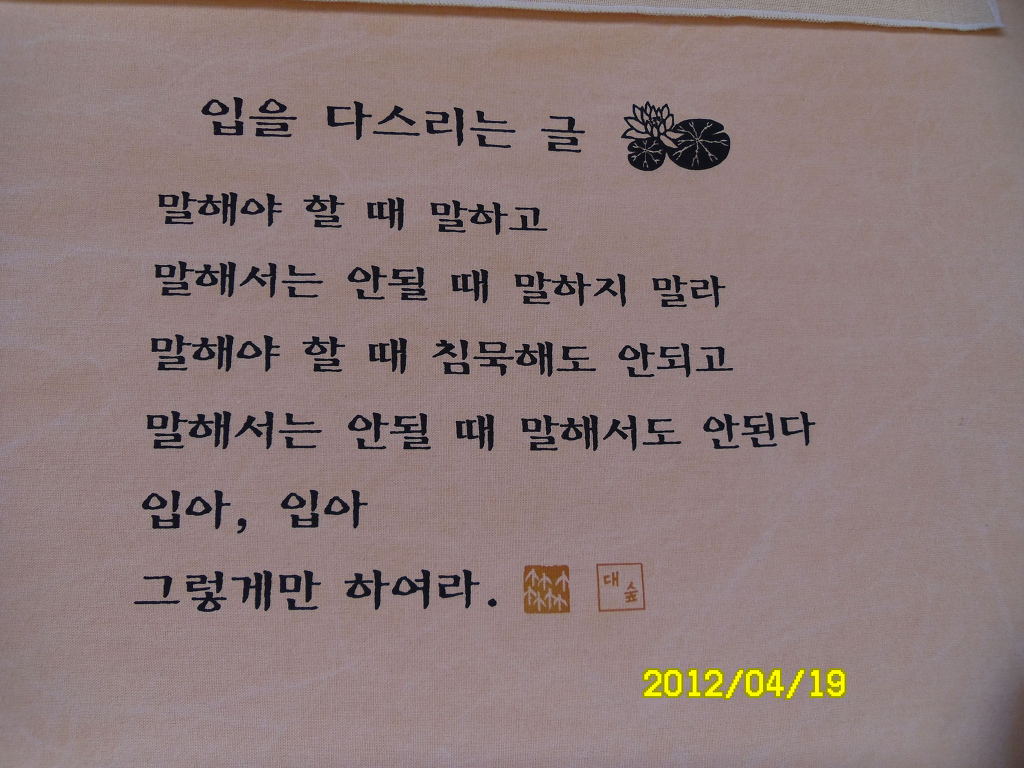 입을 다스리는 글
말해야 할 때 말하고
말해서는 안될 때 말하지 말라
말해야 할 때 침묵해도 안되고
말해서는 안될 때 말해서도 안된다
입아, 입아
그렇게만 하여라.
대숲
2012/04/19